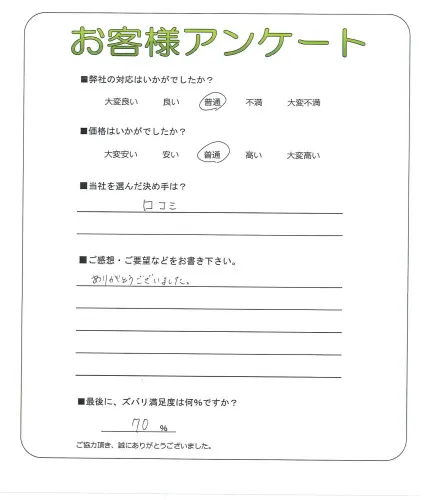 お客様アンケート
■弊社の対応はいかがでしたか？
大変良い 良い 普通 不満 大変不満
■価格はいかがでしたか？
大変安い 安い 普通 高い 大変高い
■当社を選んだ決め手は？
口コミ
■ご感想・ご要望などをお書き下さい。
ありがとうございました。
■最後に、ズバリ満足度は何%ですか？
70 %
ご協力頂き、誠にありがとうございました。